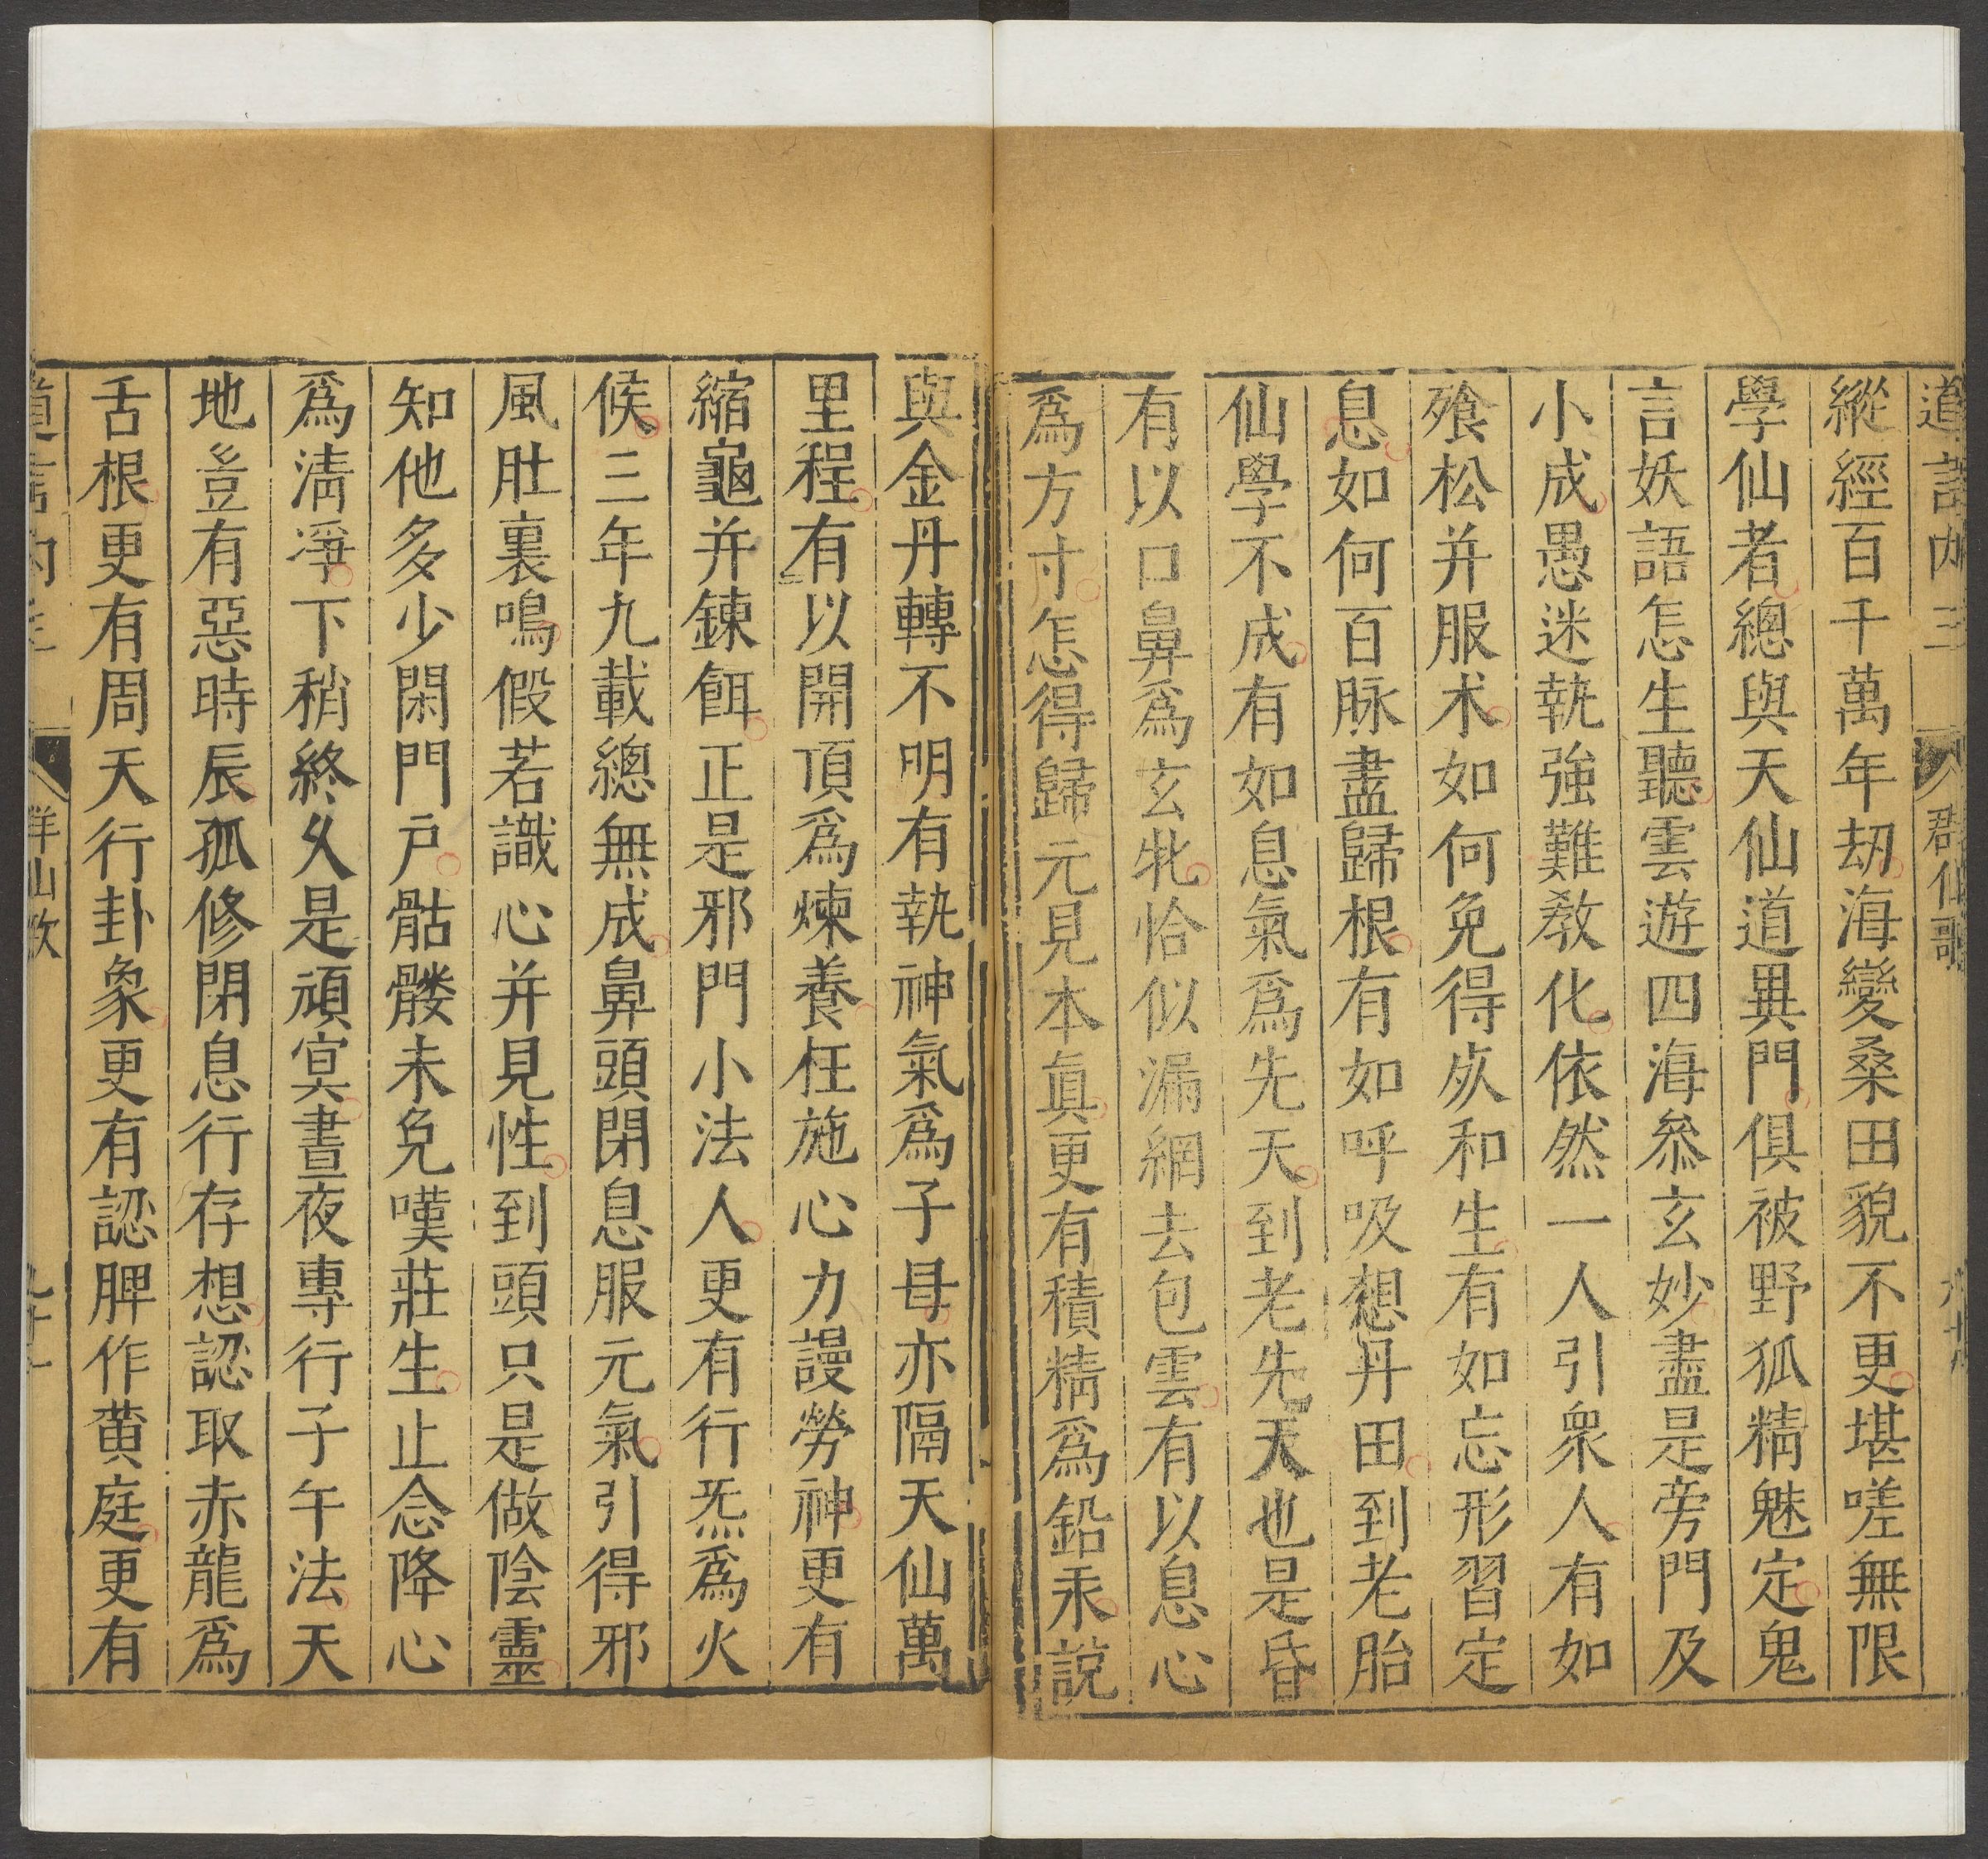 道言内三 群仙歌
縱經百千萬年刼海變桑田貌不更堪嗟無限
學仙者總與天仙道異門俱被野狐精魅定鬼
言妖語怎生聽雲遊四海叅玄妙盡是旁門及
小成愚迷執強難教化依然一人引衆人有如
飱松并服术如何免得死和生有如忘形習定
息如何百脉盡歸根有如呼吸想丹田到老胎
仙學不成有如息氣爲先天到老先天也是昏
有以口鼻爲玄牝恰似漏網去包雲有以息心
爲方寸怎得歸元見本眞更有積精爲鉛汞説
與金丹轉不明有執神氣爲子母亦隔天仙萬
里程有以開頂爲煉養枉施心力謾勞神更有
縮龜并鍊餌正是邪門小法人更有行炁爲火
候三年九載總無成鼻頭閉息服元氣引得邪
風肚裏鳴假若識心并見性到頭只是做陰靈
知他多少閑門户骷髏未免嘆莊生止念降心
爲清淨下稍終久是頑㝠晝夜專行子午法天
地豈有惡時辰孤修閉息行存想認取赤龍爲
舌根更有周天行卦象更有認脾作黄庭更有